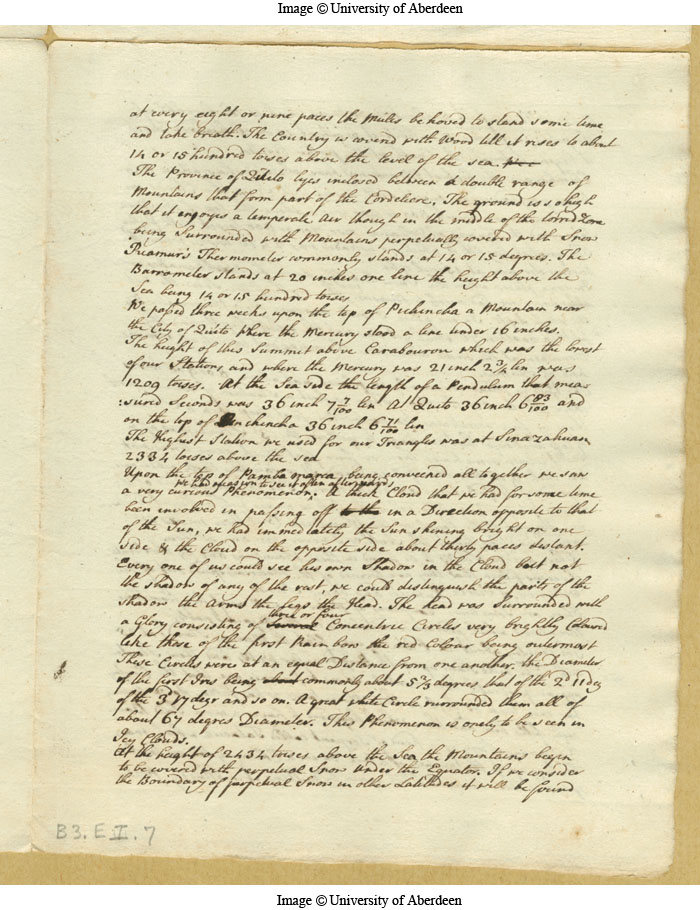 Image © University of Aberdeen
at every eight or nine paces the Mules be hoved to stand some time
and take breath. The Country is covered with Wood till it rises to about
14 or 15 hundred toises above the level of the sea.
The Province of Quito lyes inclosed between a double range of
Mountains that form part of the Cordeliere. The ground is so high
that it enjoyes a temperate Air though in the middle of the torrid Zone
being Surrounded with Mountains perpetually covered with Snow
Reamur's Thermometer commonly stands at 14 or 15 degrees. The
Barrometer stands at 20 inches one line the height above the
Sea being 14 or 15 hundred toises
We passed three weeks upon the top of Pichincha a Mountain near
the City of Quito where the Mercury stood a line under 16 inches.
The height of this Summit above Carabourou which was the lowest
of our Stations and where the Mercury was 21 inch 2 3/4 lin was
1209 toises. At the Sea side the length of a Pendulum that mea
:sured Seconds was 36 inch 7 7/100 lin At Quito 36 inch 6 83/100 and
on the top of Pinchincha 36 inch 6 71/100 lin
The Highest Station we used for our Triangles was at Sinazahuan
2334 toises above the sea
Upon the top of Pamba marca being conveened all together we saw
we had reason to see it often afterwards
a very curious Phenomenon. A thick Cloud that we had for some time
been involved in passing off to the in a Direction opposite to that
of the Sun, we had immediately the Sun shining bright on one
side & the Cloud on the opposite side about thirty paces distant.
Every one of us could see his own Shadow in the Cloud but not
the shadow of any of the rest, we could distinguish the parts of the
shadow the Arms the legs the Head. The head was Surrounded with
three or four
a Glory consisting of Several Concentric Circles very brightly Coloured
like those of the first Rainbow the red Colour being outermost
These Circles were at an equal Distance from one another. the Diameter
of the first Iris being about commonly about 5 2/3 degrees that of the 2d 11 deg
of the 3d 17 degr and so on. A great white Circle surrounded them all of
about 67 degres Diameter. This Phenomenon is onely to be seen in
Icy Clouds.
At the height of 2434 toises above the Sea the Mountains begin
to be covered with perpetual Snow under the Equator. If we consider
the Boundary of perpetual Snow in other Latitudes it will be found
B3.E.II.7
Image © University of Aberdeen